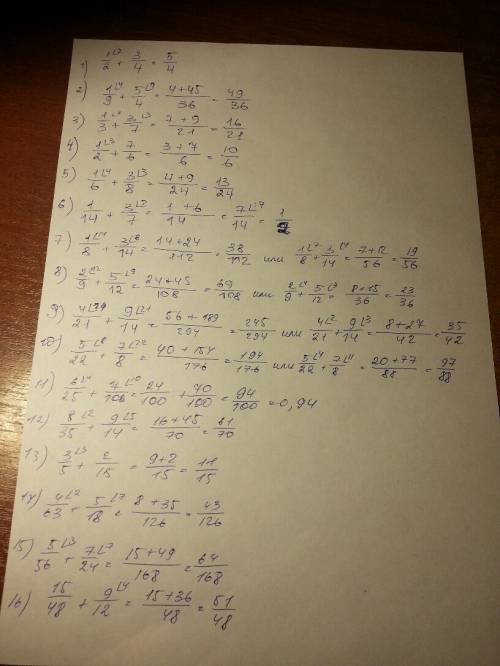 1) 1/2 + 3/4 = 5/4
2) 1/9 + 5/4 = 4+45/36 = 49/36
3) 1/3 + 3/7 = 7+9/21 = 16/21
4) 1/2 + 7/6 = 3+7/6 = 10/6
5) 1/6 + 3/8 = 4+9/24 = 13/24
6) 1/14 + 3/7 = 1+6/14 = 7/14 = 1/2
7) 1/8 + 3/14 = 14+24/112 = 38/112 или 1/8 + 3/14 = 7+12/56 = 19/56
8) 2/9 + 5/12 = 24+45/108 = 69/108 или 2/9 + 5/12 = 8+15/36 = 23/36
9) 4/21 + 9/14 = 56+189/294 = 245/294 или 4/21 + 9/14 = 8+27/42 = 35/42
10) 5/22 + 7/8 = 40+154/176 = 194/176 или 5/22 + 7/8 = 20+77/88 = 97/88
11) 6/25 + 7/10 = 24/100 + 70/100 = 94/100 = 0,94
12) 8/35 + 9/14 = 16+45/70 = 61/70
13) 3/5 + 2/15 = 9+2/15 = 11/15
14) 4/63 + 5/18 = 8+35/126 = 43/126
15) 5/56 + 7/24 = 15+49/168 = 64/168
16) 15/48 + 9/12 = 15+36/48 = 51/48